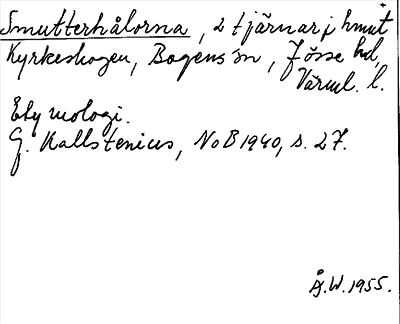 Smutterhålorna, 2 tjärnar i hmut
Kyrkeskogen, Bogens sn, Jösse hd,
Värml. l.
Etymologi.
G. Kallstenius, NoB 1940, s. 27.
Å.W. 1955.